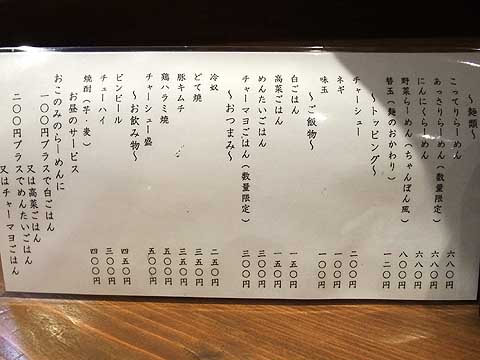 〜麺類〜
こってりらーめん 六八〇円
あっさりらーめん(数量限定) 六八〇円
にんにくらーめん 六八〇円
野菜らーめん(ちゃんぽん風) 八〇〇円
替玉(麺のおかわり) 一二〇円
〜トッピング〜
チャーシュー 二〇〇円
ネギ 一〇〇円
味玉 一〇〇円
〜ご飯物〜
白ごはん 一五〇円
高菜ごはん 一五〇円
めんたいごはん 三〇〇円
チャーマヨごはん(数量限定) 三〇〇円
〜おつまみ〜
冷奴 二五〇円
どて焼 三五〇円
豚キムチ 三五〇円
鶏ハラミ焼 五五〇円
チャーシュー盛 五〇〇円
〜お飲み物〜
ビンビール 四五〇円
チューハイ 三〇〇円
焼酎(芋・麦) 四〇〇円
お昼のサービス
おこのみのらーめんに
一〇〇円プラスで白ごはん
又は高菜ごはん
二〇〇円プラスでめんたいごはん
又はチャーマヨごはん